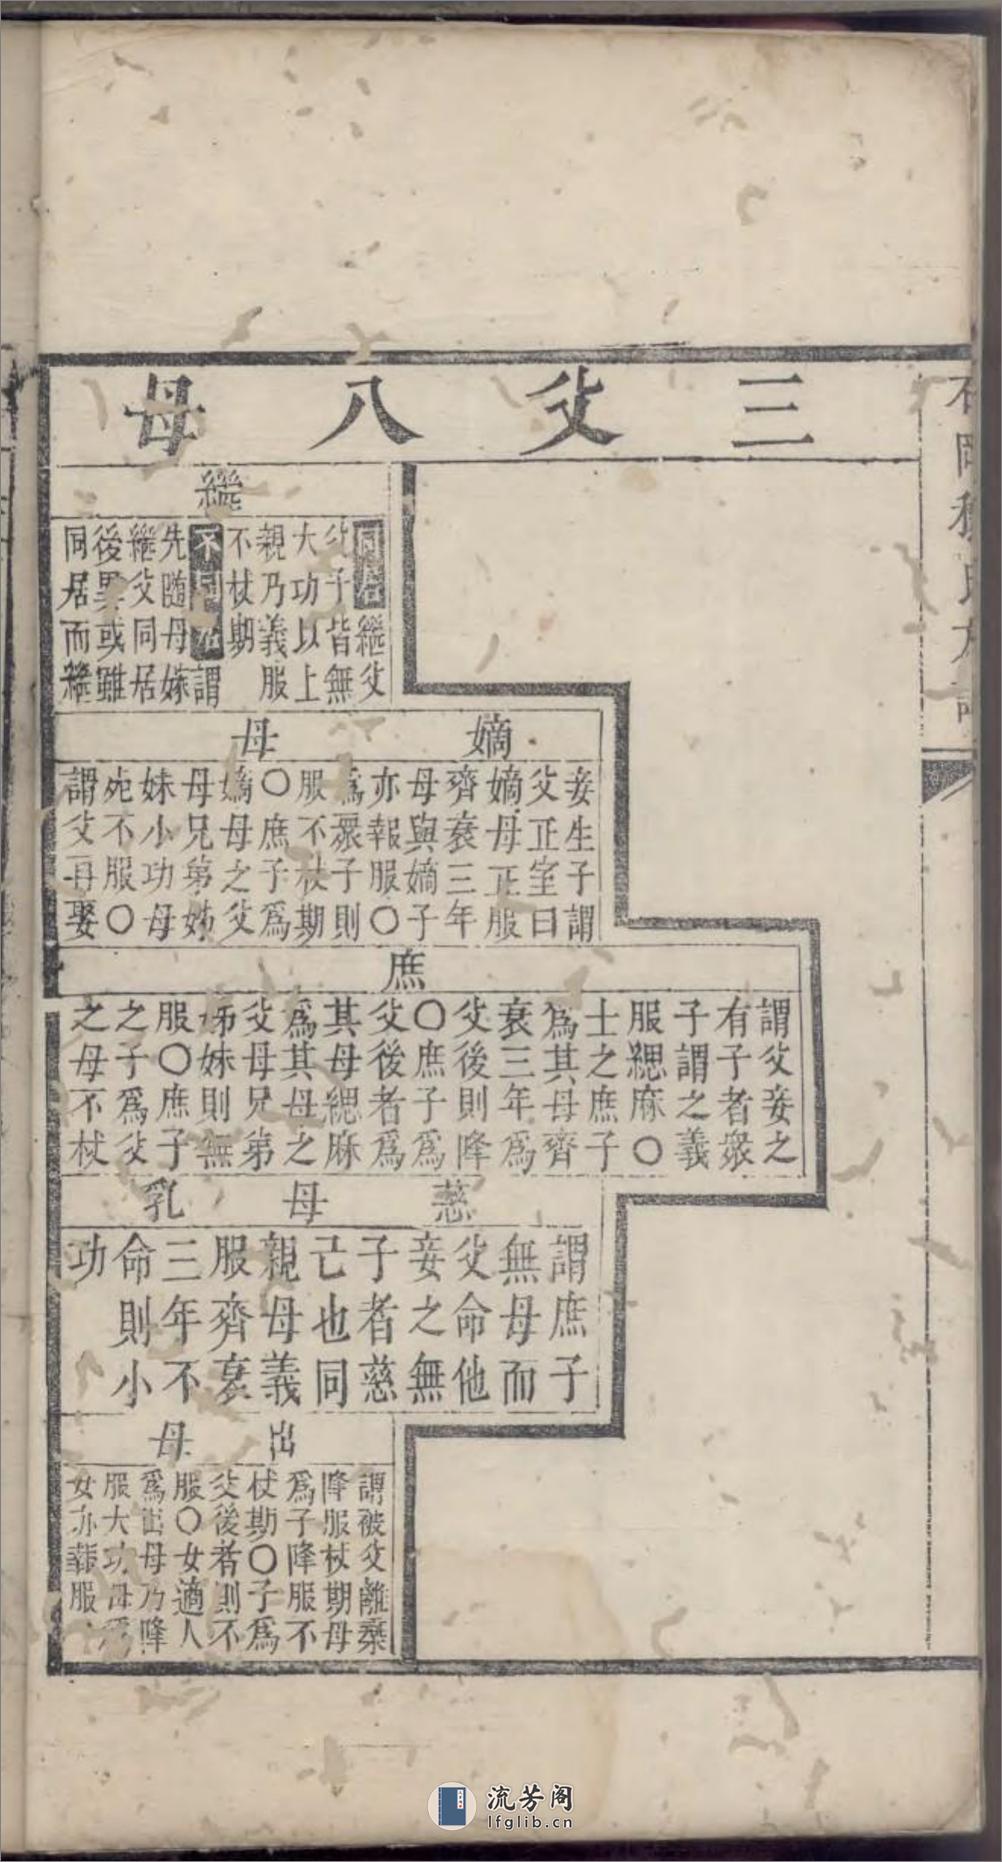 三父八母
繼
同居繼父
父子皆無
大功以上
親乃義服
不杖期
不同居謂
先随母嫁
繼父同居
後異或雖
同居而繼
嫡母
妾生子謂
父正室曰
嫡母正服
齊衰三年
母與嫡子
亦報服〇
爲衆子則
服不杖期
〇庶子爲
嫡母之父
母兄弟姊
妹小功母
死不服〇
謂父再娶
庶
謂父妾之
有子者衆
子謂之義
服緦麻〇
士之庶子
爲其母齊
衰三年爲
父後則降
〇庶子爲
父後者爲
其母緦麻
爲其母之
父母兄弟
姊妹則無
服〇庶子
之子爲父
之母不杖
慈母乳
謂庶子
無母而
父命他
妾之無
子者慈
己也同
親母義
服齊衰
三年不
命則小
功
出母
謂被父離棄
降服杖期母
爲子降服不
杖期〇子爲
父後者則不
服〇女適人
爲出母乃降
服大功母爲
女亦報服
流芳阁
lfglib.cn